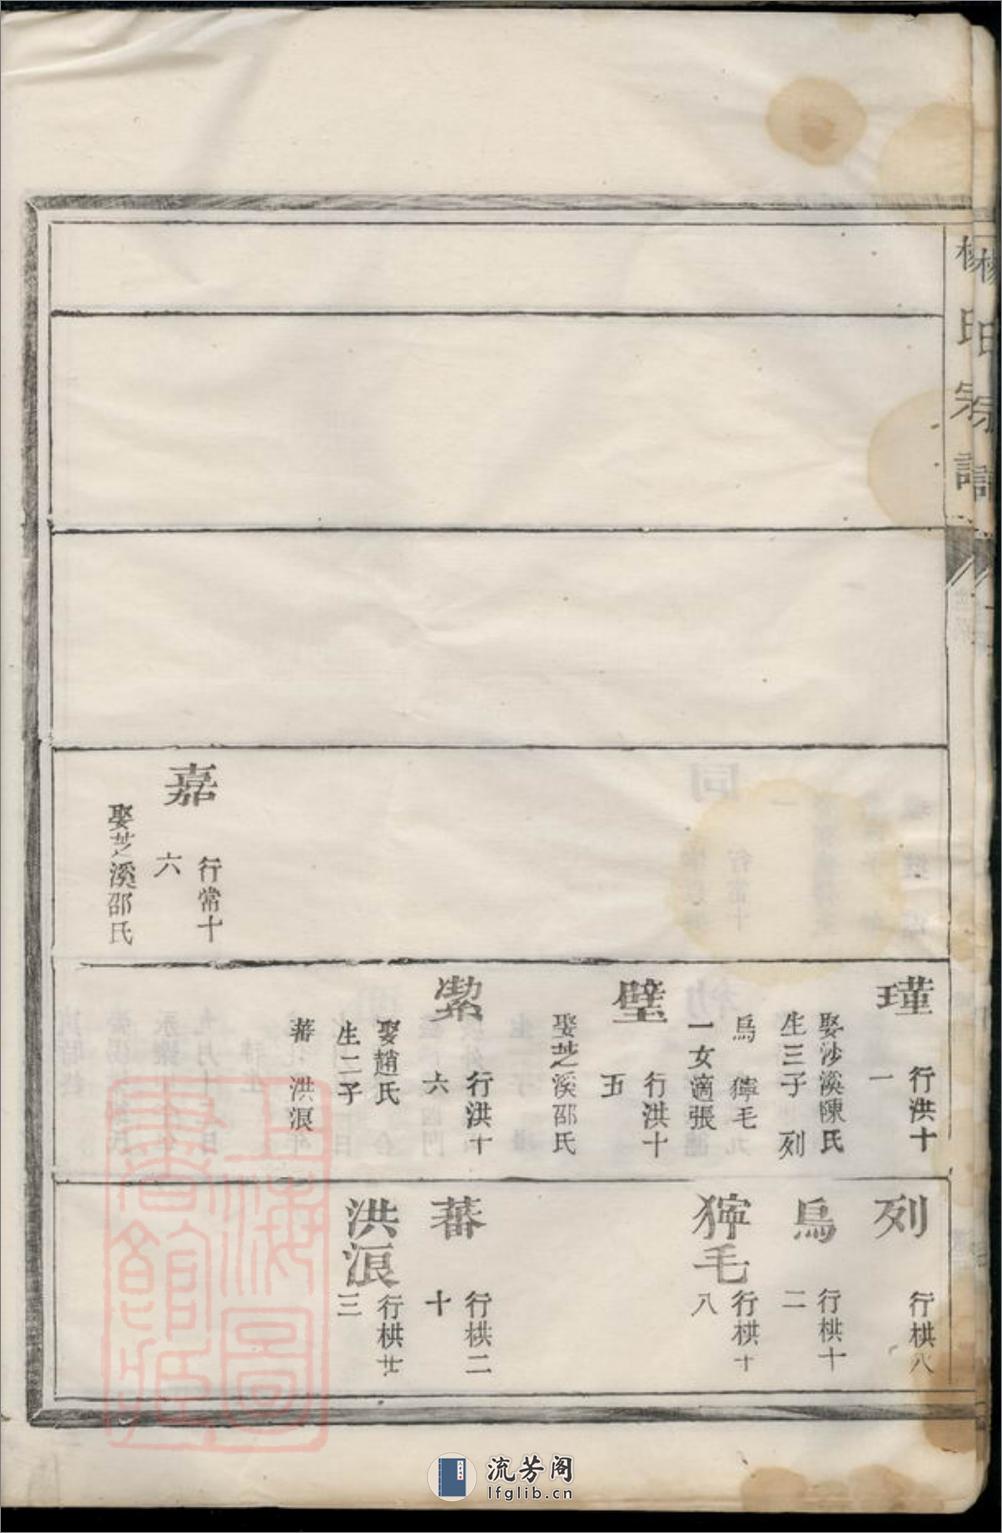 楊氏宗譜
嘉
行常十
六
娶芝溪邵氏
瑾
行洪十
一
娶沙溪陳氏
生三子 列
烏 獰毛
一女適張
璧
行洪十
五
娶芝溪邵氏
潔
行洪十
六
娶趙氏
生二子
蕃 洪浪
列
行栱八
烏
行栱十
二
獰毛
行栱十
八
蕃
行栱二
十
洪浪
行栱廿
三
上海圖
書館藏
流芳阁
lfglib.cn